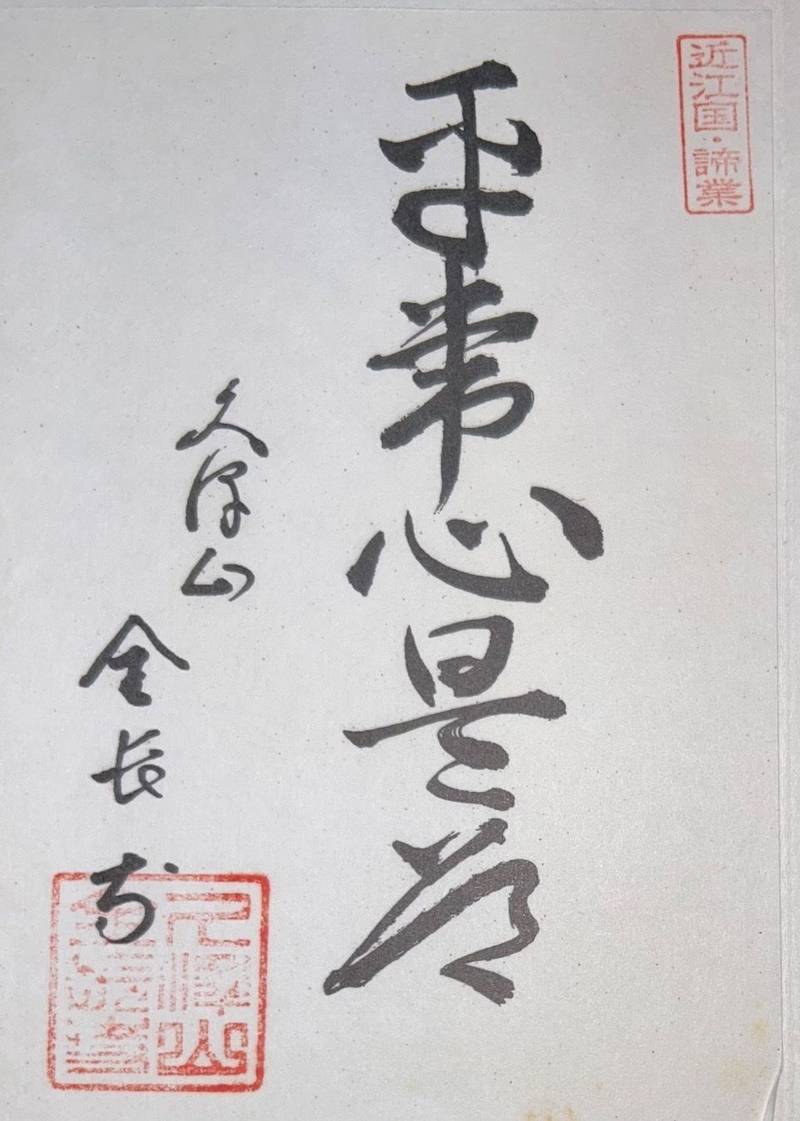 近江国・諦業
平常心是道
久澤山
全長寺